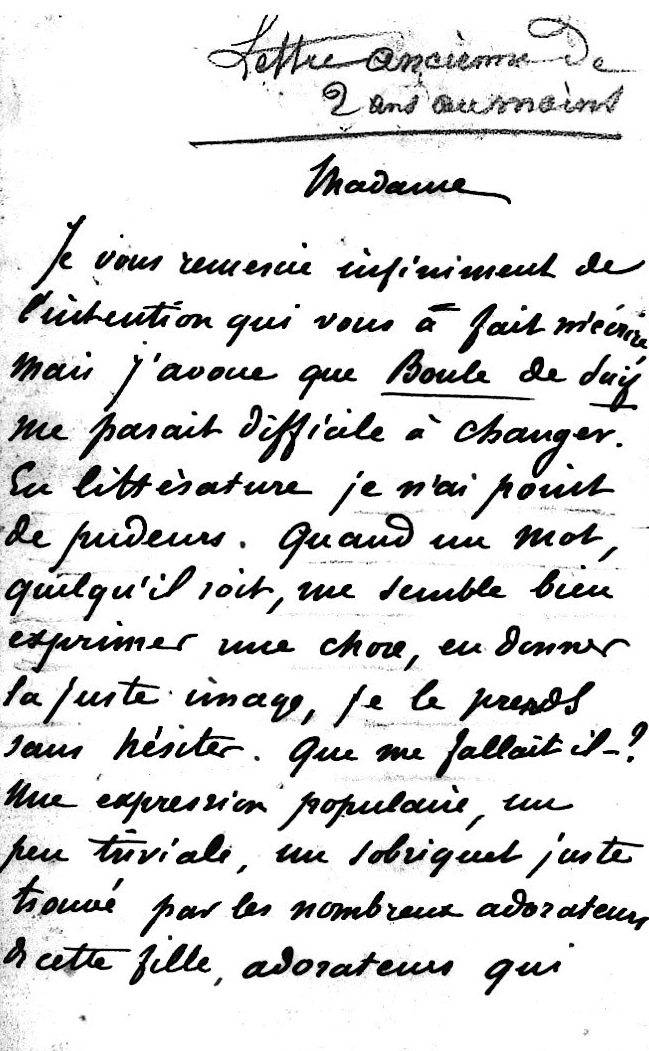 Lettre ancienne de
2 ans au moins
Madame
Je vous remercie infiniment de
l'intention qui vous a fait m'écrire
mais j'avoue que Boule de Suif
me parait difficile à changer.
En littérature je n'ai point
de pudeurs. Quand un mot,
quelqu'il soit, me semble bien
exprimer une chose, en donner
la juste image, je le prends
sans hésiter. Que me fallait il-?
Une expression populaire, un
peu triviale, un sobriquet juste
trouvé par les nombreux adorateurs
de cette fille, adorateurs qui